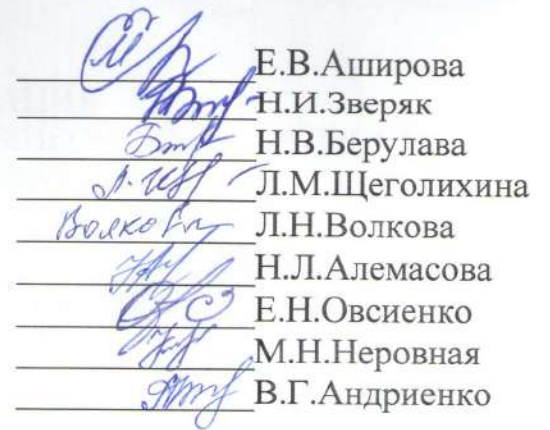 Е.В.Аширова
Н.И.Зверяк
Н.В.Берулава
Л.М.Щеголихина
Л.Н.Волкова
Н.Л.Алемасова
Е.Н.Овсиенко
М.Н.Неровная
В.Г.Андриенко